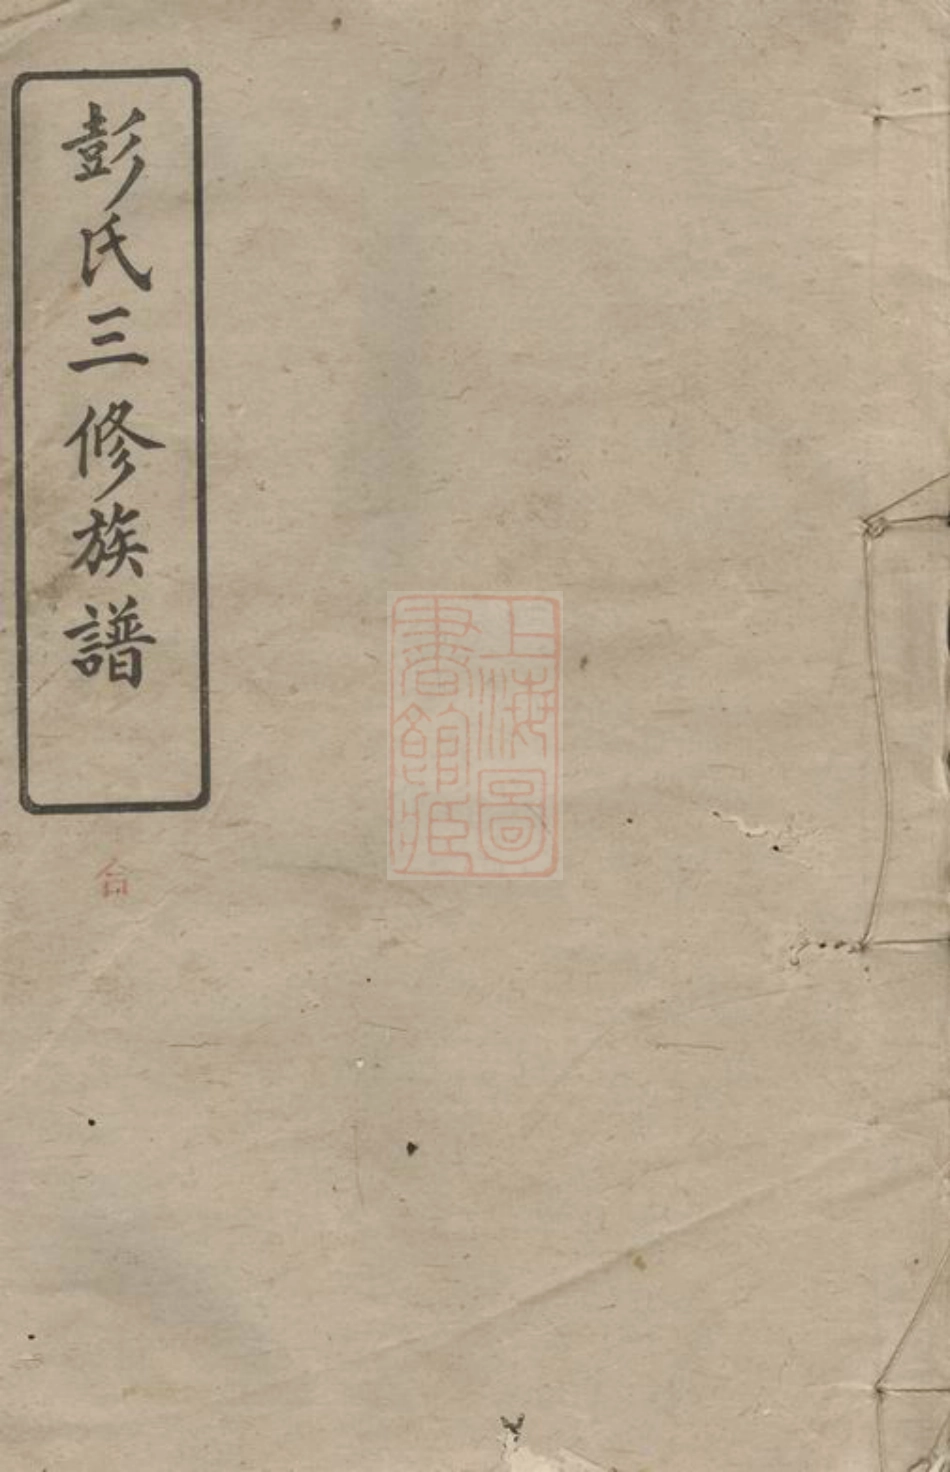 彭氏三修族譜
上海圖
書館藏